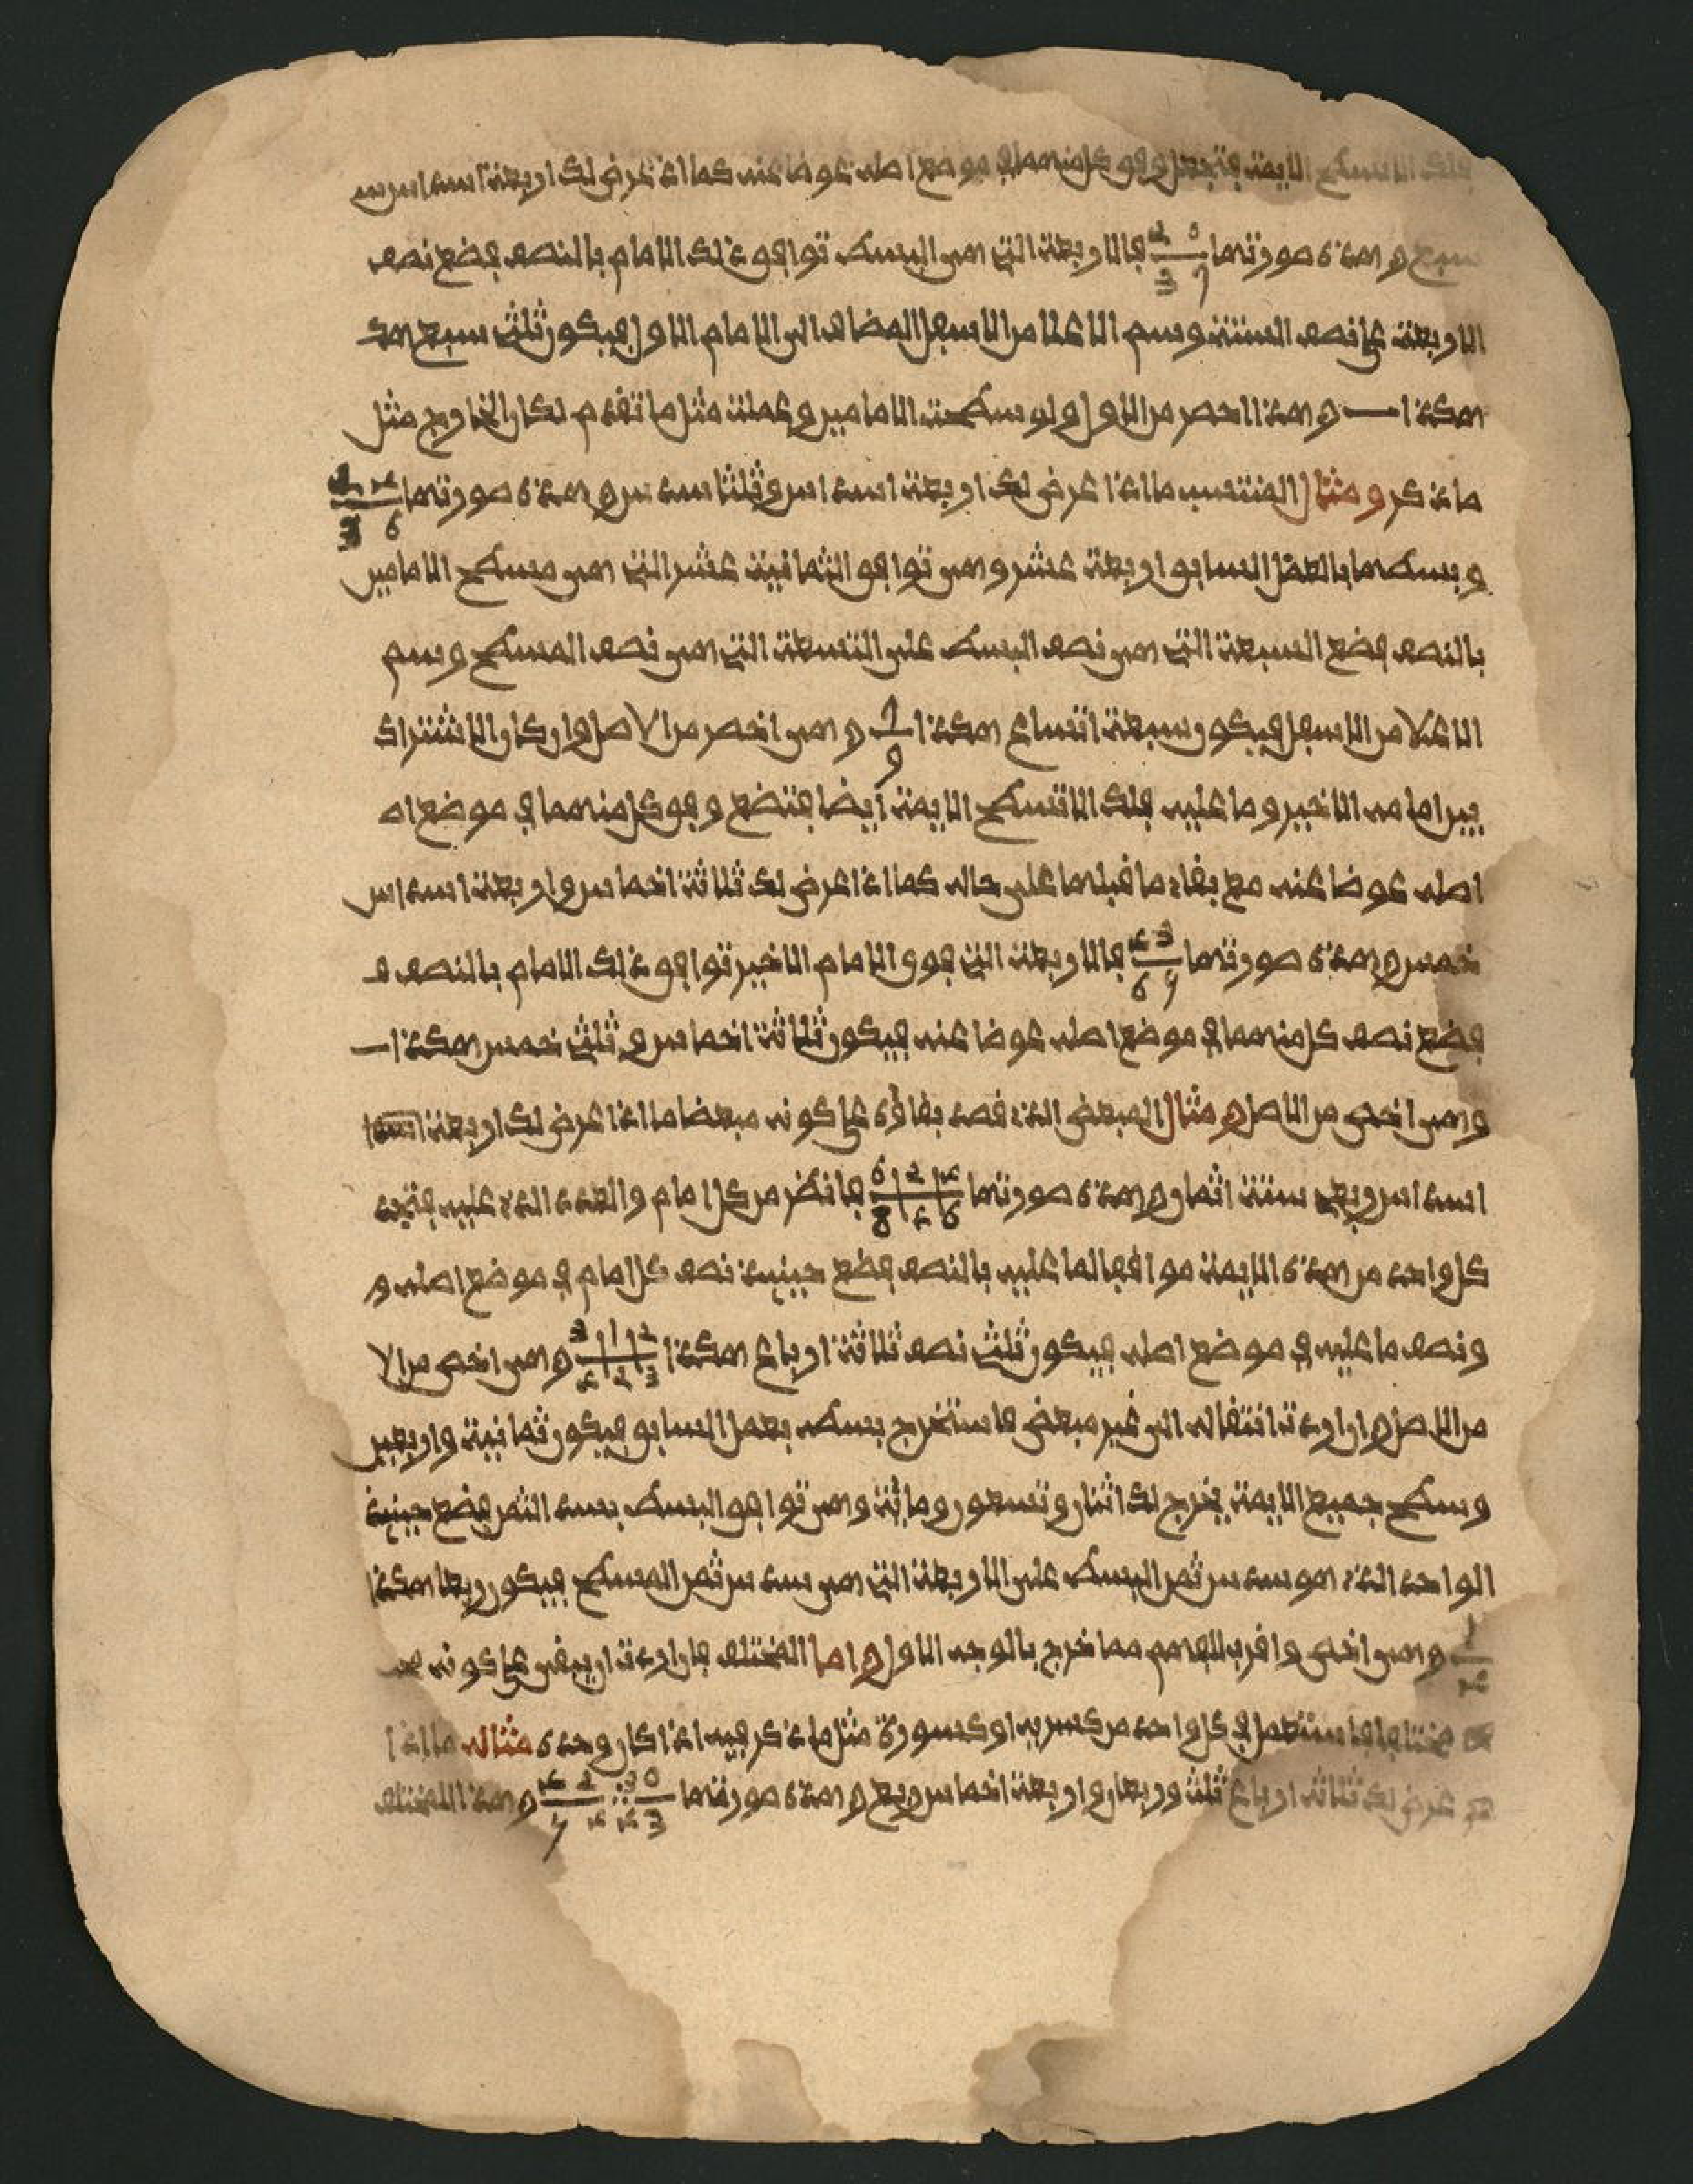 فلك الا تسطح الايمة فتجعل وفق كل منهما في موضع اصله عوضا عنه كما اذا عرض لك اربعة اسداس
سبع وهذه صورتها 4 0 / 6 7 فالاربعة التي هي البسط توافق ذلك الامام بالنصف فضع نصف
الاربعة على نصف الستة وسم الاعلا من الاسفل المضاف الى الامام الاول فيكون ثلثي سبع هك
هكذا وهذا اخصر من الاول ولو سطحت الامامين وعملت مثل ما تقدم لكان الخارج مثل
ما ذكر ومثال المنتسب ما اذا عرض لك اربعة اسداس وثلثا سدس وهذه صورتها 2 4 / 3 6
وبسطها بالعمل السابق اربعة عشر وهي توافق الثمانية عشر التي هي مسطح الامامين
بالنصف فضع السبعة التي هي نصف البسط على التسعة التي هي نصف المسطح وسم
الاعلا من الاسفل فيكون سبعة اتساع هكذا 7 / 9 وهي اخصر من الاصل وان كان الاشتراك
بين امامه الاخير وما عليه فلك الا تسطح الايمة ايضا فتضع وفق كل منهما في موضع اص
اصله عوضا عنه مع بقاء ما قبلها على حاله كما اذا عرض لك ثلاثة اخماس واربعة اسداس
خمس وهذه صورتها 4 3 / 6 5 فالاربعة التي فوق الامام الاخير توافق ذلك الامام بالنصف ف
فضع نصف كل منهما في موضع اصله عوضا عنه فيكون ثلاثة اخماس وثلثي خمس هكذا
وهي اخص من الاصل ومثال المبعض الذي قصد بقاؤه على كونه مبعضا ما اذا عرض لك اربعة
اسداس ربعي ستة اثمان وهذه صورتها 6 | 2 | 4 / 8 | 4 | 6 فانظر من كل امام والعدد الذي عليه فتجد
كل واحد من هذه الايمة موافقا لما عليه بالنصف فضع حينئذ نصف كل امام في موضع اصله و
ونصف ما عليه في موضع اصله فيكون ثلثي نصف ثلاثة ارباع هكذا 3 | 1 | 2 / 4 | 2 | 3 وهي اخص من الا
من الاصل وان اردت انتقاله الى غير مبعض فاستخرج بسطه بعمل السابق فيكون ثمانية واربعين
وسطح جميع الايمة يخرج لك اثنان وتسعون ومائة وهي توافق البسط بسدس الثمن فضع حينئذ
الواحد الذي هو سدس ثمن البسط على الاربعة التي هي سدس ثمن المسطح فيكون ربعا هكذا
1 / 4 وهي اخص واقرب للفهم مما خرج بالوجه الاول واما المختلف فان اردت ان يبقى على كونه
مختلفا فاستعمل في كل واحد من كسريه او كسوره مثل ما ذكر فيه اذا كان وحده مثاله ما اذا
عرض لك ثلاثة ارباع ثلث وربعان واربعة اخماس ربع وهذه صورتها 4 2 ∴ 3 0 / 5 4 4 3 وهذا المختلف